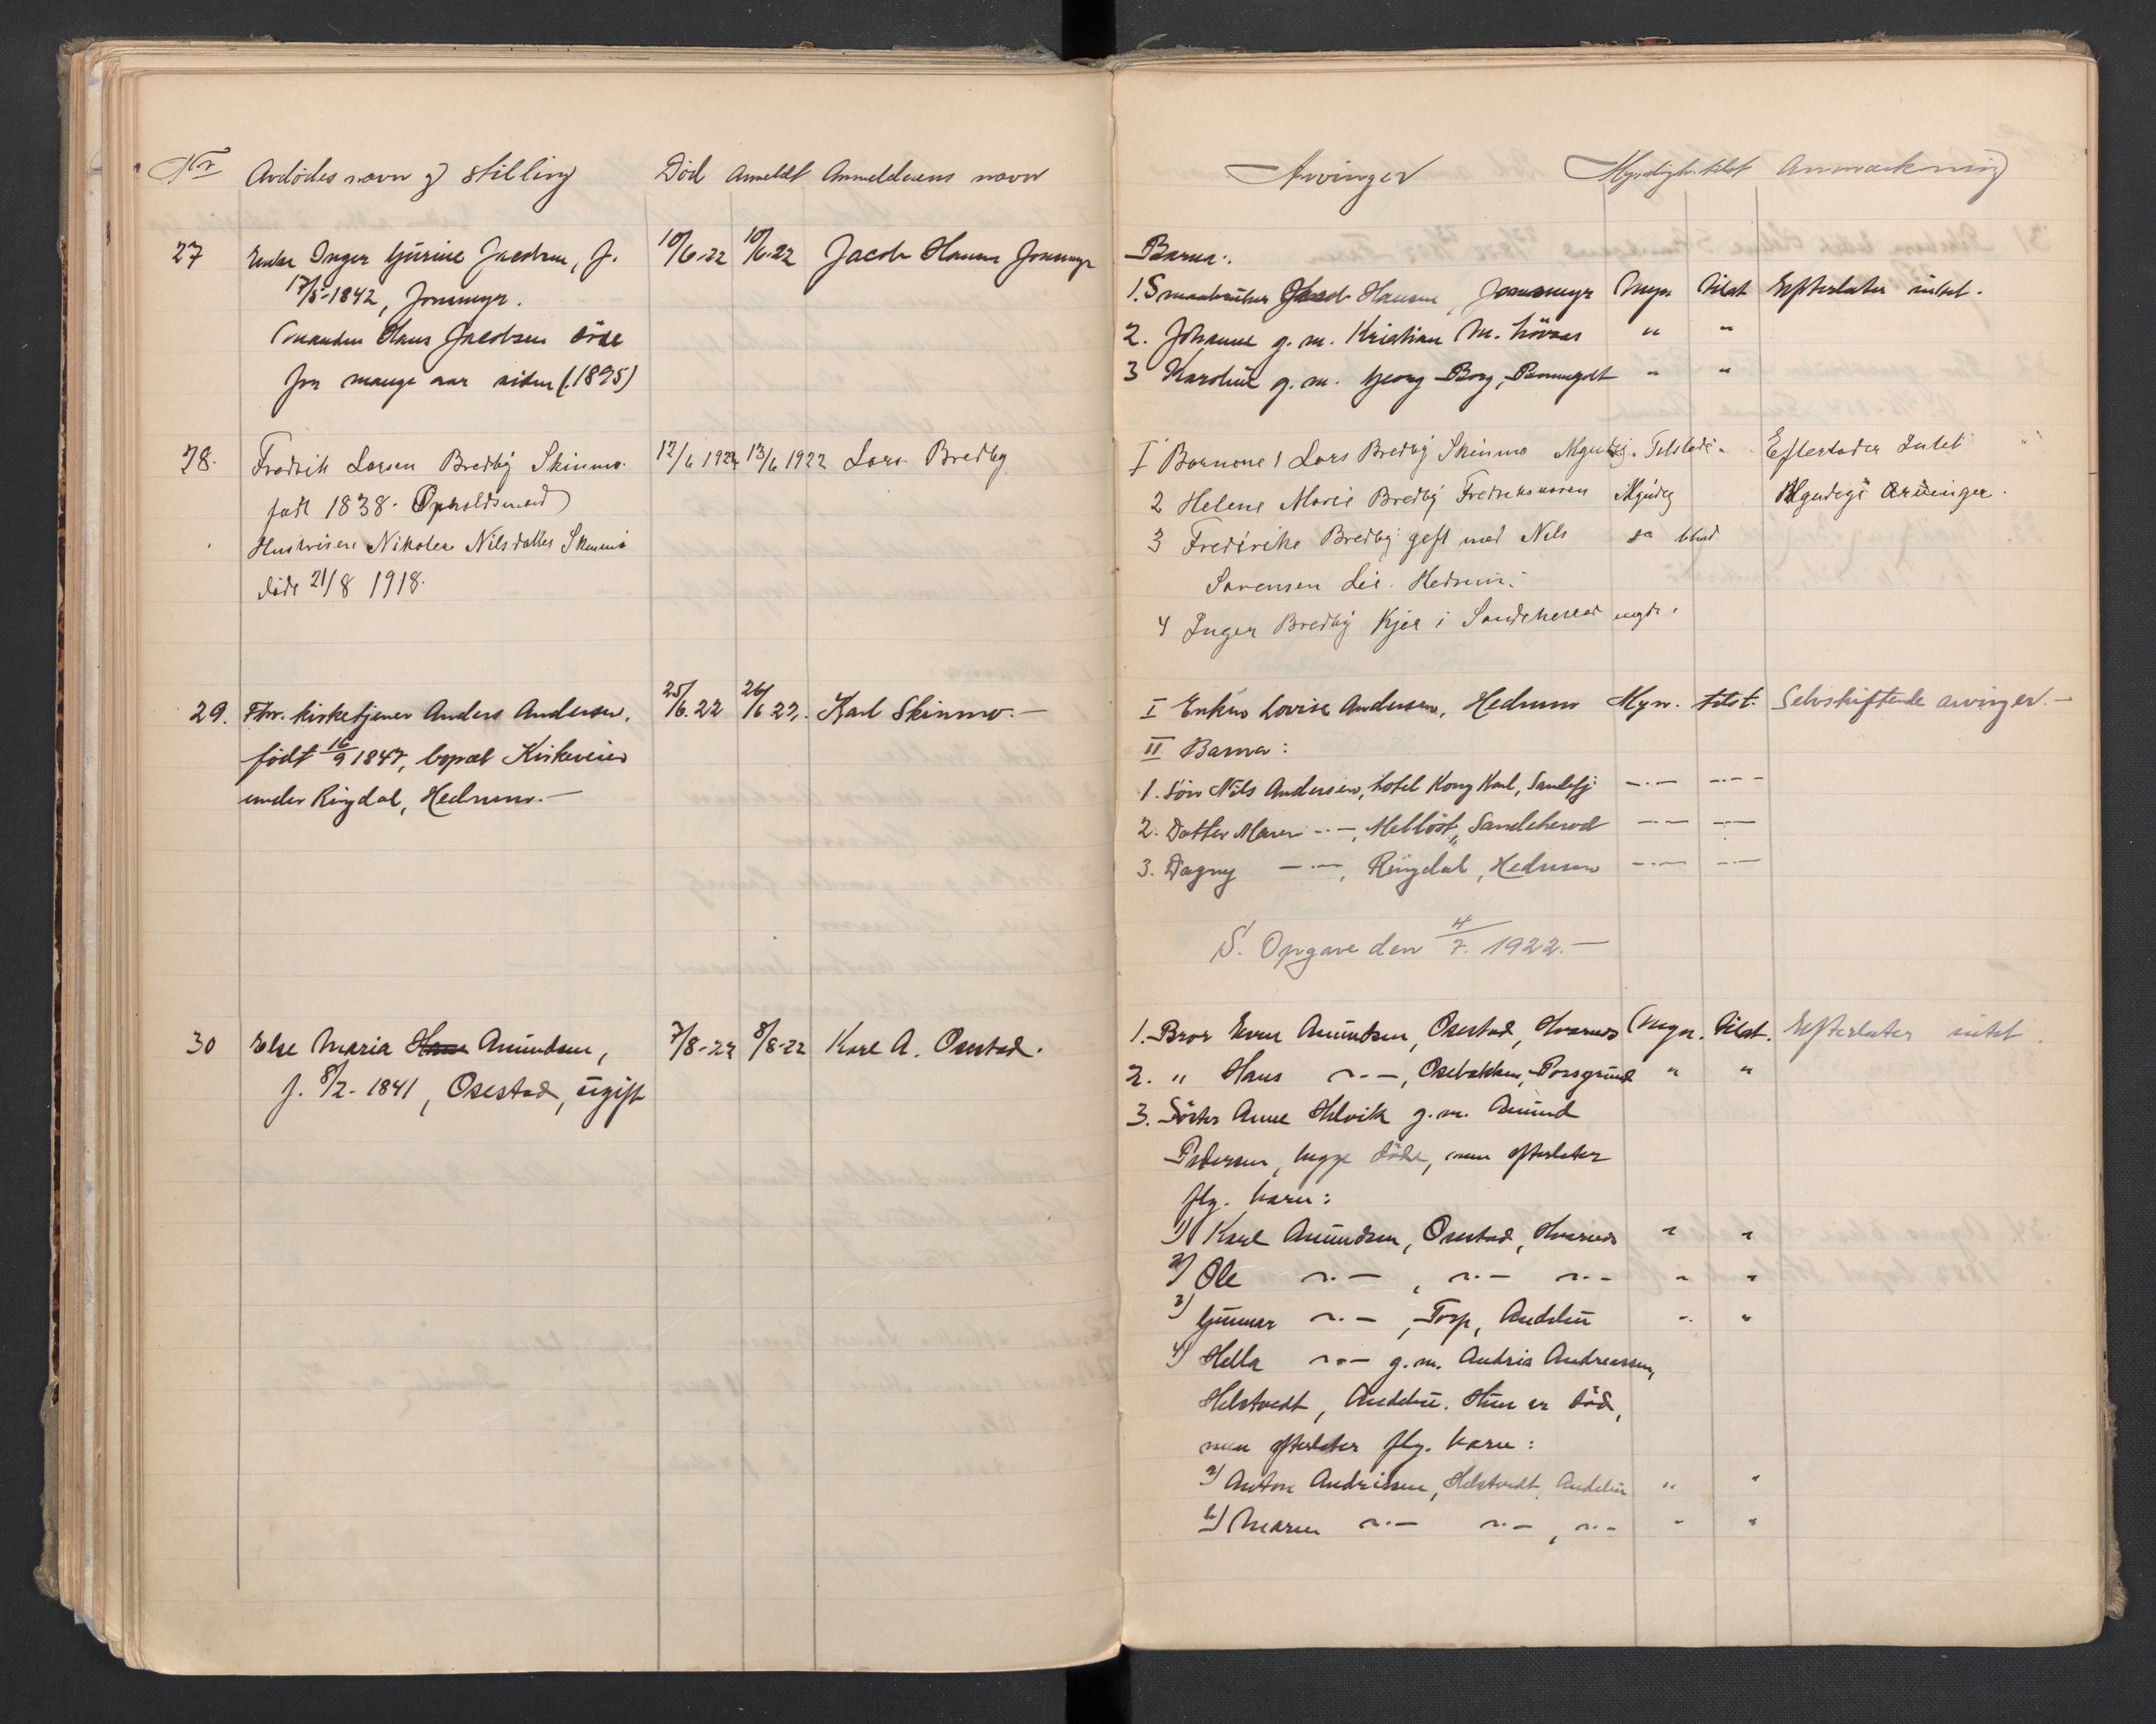 Nr Avdødes navn og stilling Død Anmeldt Anmelderens navn
27 Enke Inger Gurine Jacobsen, f. 10/6-22 10/6-22 Jacob Hansen Jonsmyr
17/5-1842, Jonsmyr.
(manden Hans Jacobsen døde
for mange aar siden (1895)
28. Fredrik Larsen Bredby Skinmo. 12/6 1922 13/6 1922 Lars Bredby
født 1838. Opholdsmand
Hustruen Nikolea Nilsdatter Skinmo
døde 21/8 1918.
29. Fhv. kirketjener Anders Andersen, 25/6.22 26/6 22. Karl Skinmo.—
født 16/9 1847, bopæl Kirkeveien
under Ringdal, Hedrum.—
30 Else Maria Hans Amundsen, 7/8-22 8/8-22 Karl A. Osestad.
f. 8/2-1841, Osestad, ugift
Arvinger Myndigh. tilst Anmærkning
Barna:
1. Smaabruker Jacob Hansen, Jonsmyr Myn tilst Efterlater intet.
2. Johanne g. m. Kristian M. " "
3 Karoline g. m. Georg Borg, " "
I Barnene 1 Lars Bredby Skinmo Myndig. Tilstede. Efterlader Intet
2 Helene Marie Bredby Fredriksværn Myndig Myndige Arvinger.
3 Fredrikke Bredby gift med Nils
Sørensen Lie. Hedrum.
4 Inger Bredby Kjær i Sandeherred myd.
I Enken Lovise Andersen, Hedrum Myn. tilst. Selvskiftende arvinger.—
II Barna:
1. Søn Nils Andersen, hotel Kong Karl, Sandefj —.— —.—
2. Datter Maren —.—, Melløst, Sandeherred —.— —.—
3. Dagny —.—, Ringdal, Hedrum —.— —.—
S. Opgave den 4/7. 1922.—
1. Bror Even Amundsen, Osestad, Hvarnes Myn. tilst. Efterlater intet.
2. " Hans —.—, Osebakken, Porsgrund " "
3. Søster Anne Helvik g. m. Amund
Pedersen, begge døde, men efterlater
flg. barn:
1) Karl Amundsen, Osestad, Hvarnes " "
2) Ole —.—, —.— —.— " "
3) Gunnar —.—, Torp, Andebu " "
4) Hella —.— g. m. Andris Andreassen,
Helstvedt, Andebu. Hun er død,
men efterlater flg. barn:
a) Anton Andrissen, Helstvedt, Andebu " "
b) Maren —.— —.—, —.— " "